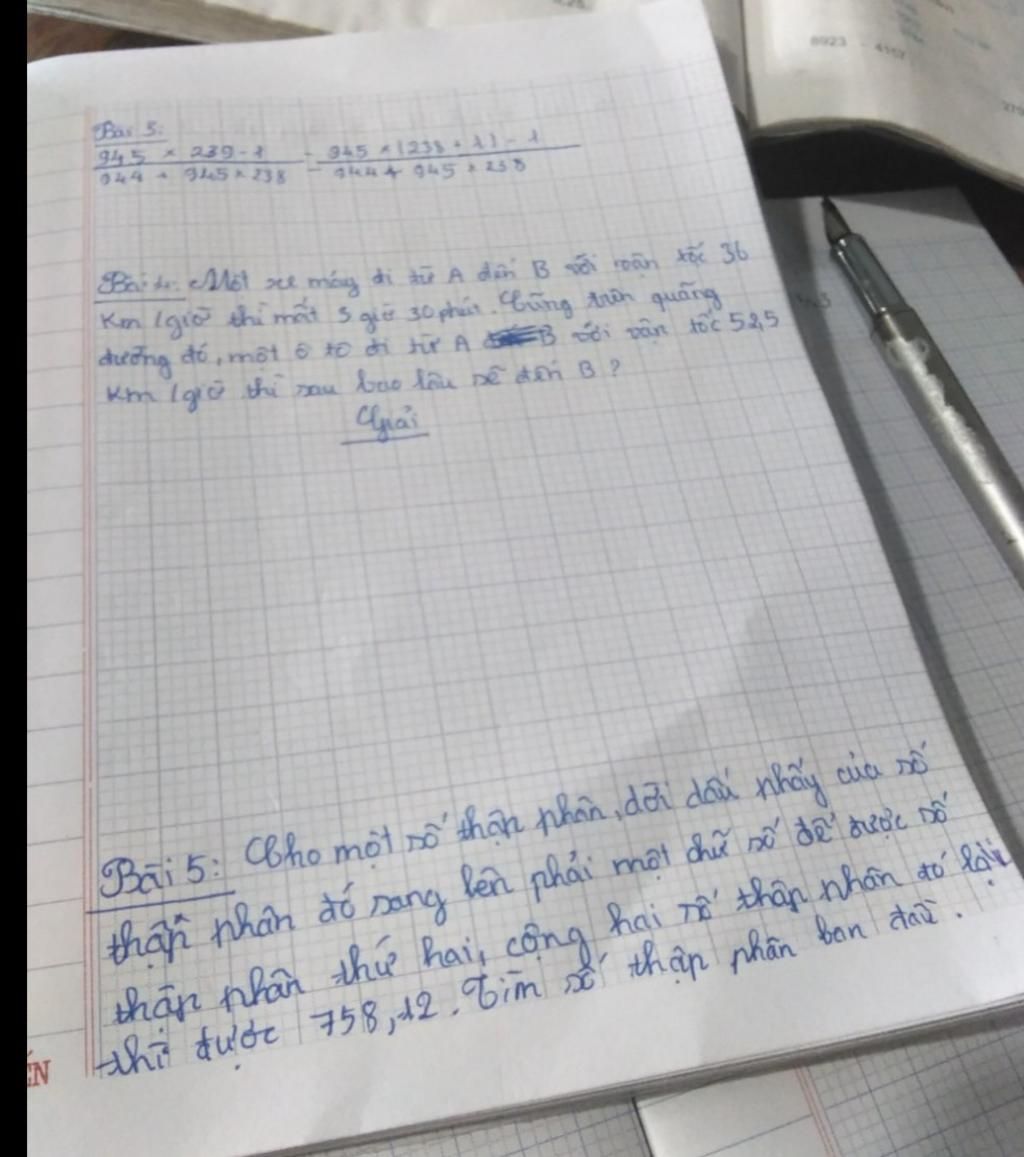 8923 - 4157
Bài 3:
945 × 239 - 1 = 945 × (238 + 1) - 1
944 + 945 × 238 944 + 945 × 238
Bài 4: Một xe máy đi từ A đến B với vận tốc 36
Km/giờ thì mất 3 giờ 30 phút. Cũng trên quãng
đường đó, một ô tô đi từ A B với vận tốc 52,5
Km/giờ thì sau bao lâu sẽ đến B?
Giải
Bài 5: Cho một số thập phân, dời dấu phẩy của số
thập phân đó sang bên phải một chữ số để được số
thập phân thứ hai, cộng hai số thập phân đó lại
thì được 758,12. Tìm số thập phân ban đầu.
ẾN